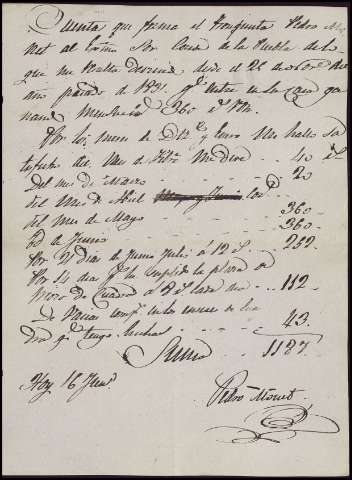 Cuenta que forma el Tronquista Pedro Mo-
net al Exmo Sor Conde de la Puebla de lo
que me resulta deviendo, desde el 25 de
año pasado de 1821. qe entre en la Casa ga-
nando Mensual 360 rs Vn.
Por los meses de y Enero Me hallo sa-
tisfecho del Mes de Febro Me deve 40 rs
Del mes de Marzo 20
del Mes de Abril Mayo y Junio
del Mes de Mayo 360
Id de Junio 360
Por 21 dias de Junio Julio á 12 rs 252
Por 14 dias qe he cumplido la plaza de
Mozo de Cuadra á 8 rs cada dia 112
De varias compas en los meses de
dra qe tengo hechas 43.
Suma 1187
Hoy 16 Juno
Pedro Monet